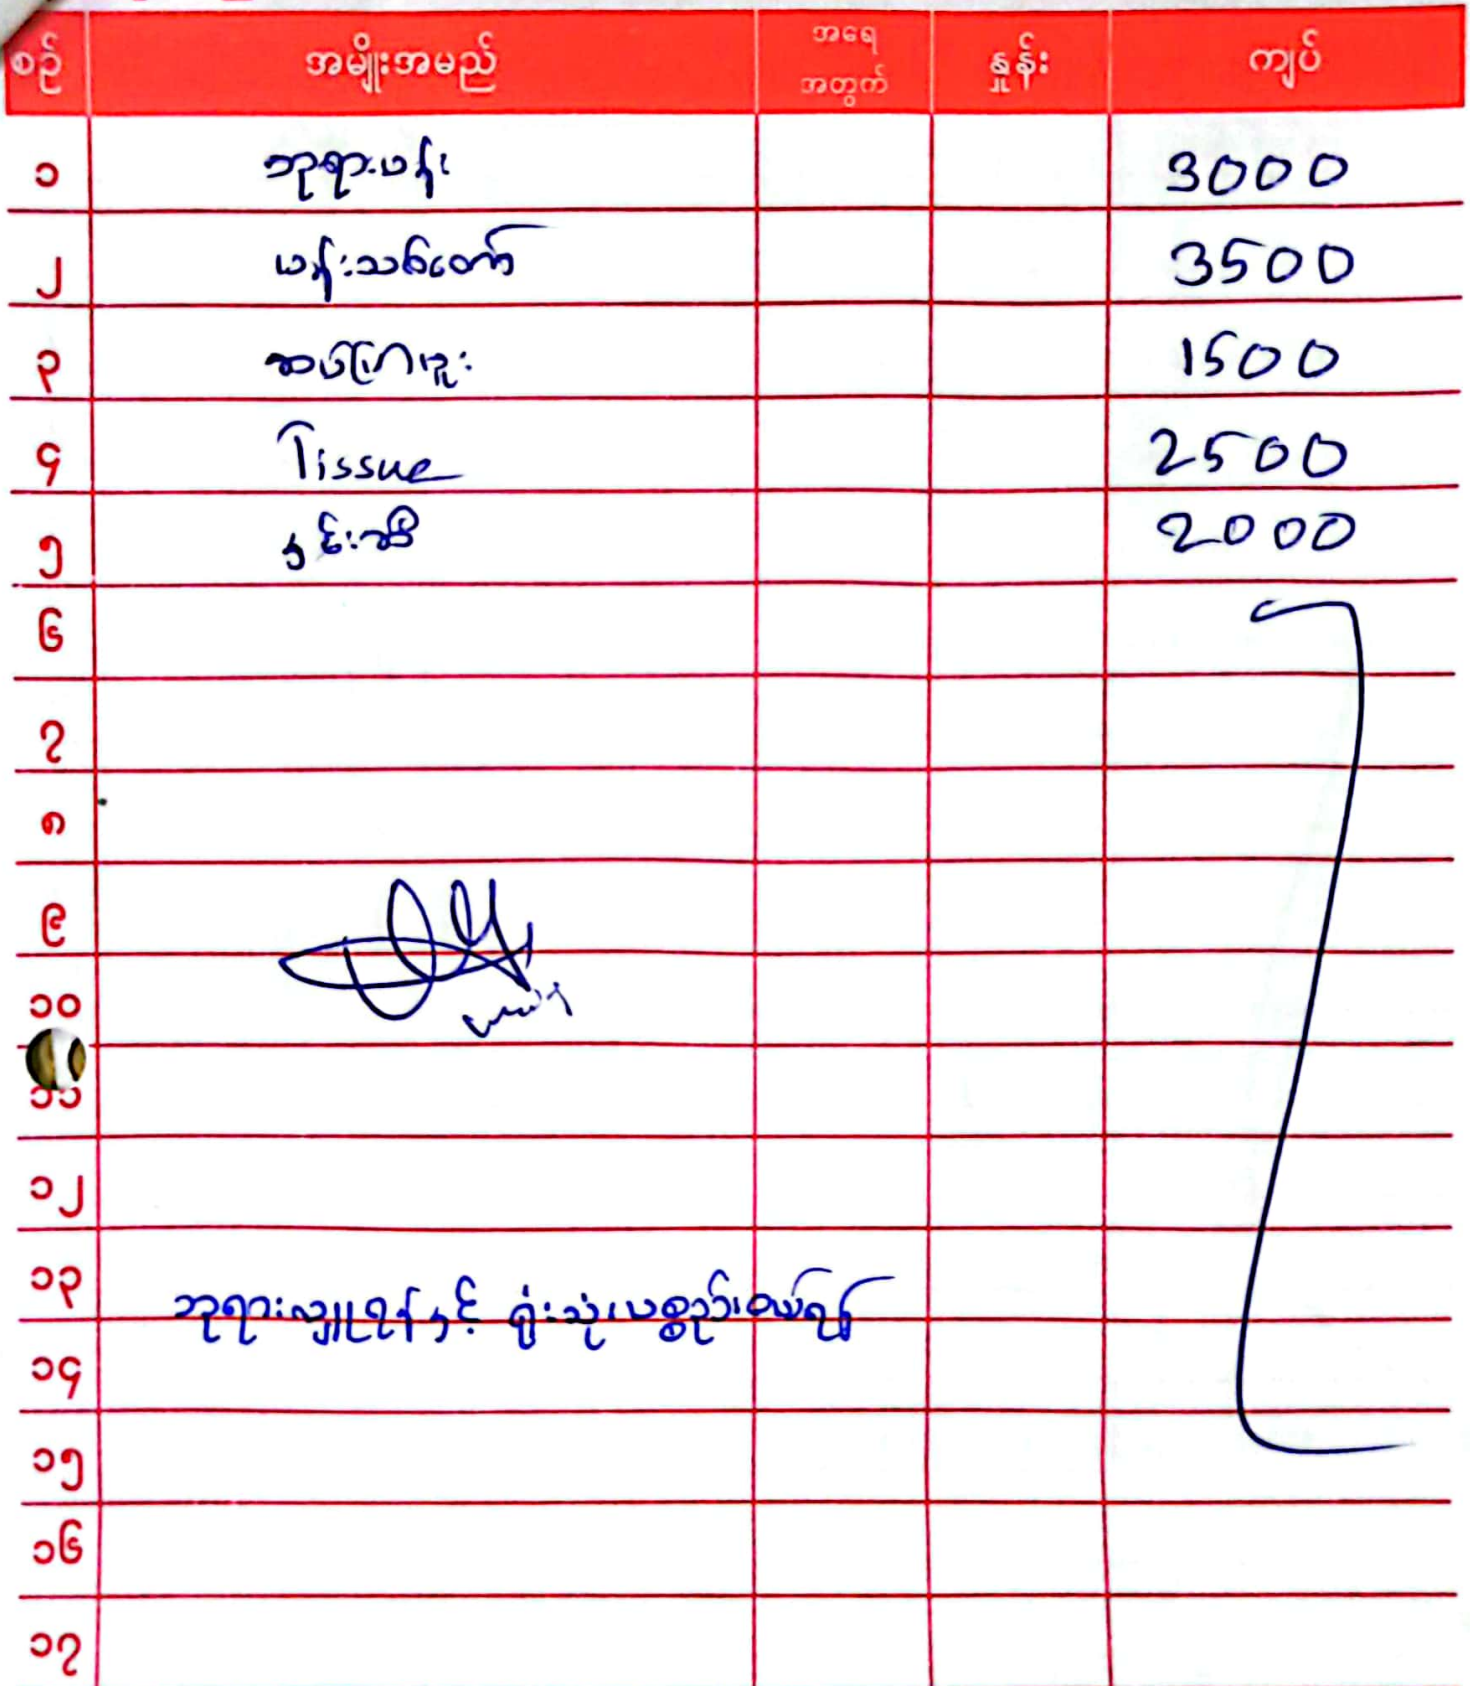 စဉ် အမျိုးအမည် အရေအတွက် နှုန်း ကျပ်
၁ ဘုရားပန်း 3000
၂ ပန်းသစ်တော် 3500
၃ ဆပ်ပြာဗူး 1500
၄ Tissue 2500
၅ နှင်းဆီ 2000
၆
၇
၈
၉
၁၀
၁၁
၁၂
၁၃ ဘုရားလှူရန်နှင့် ရုံးသုံးပစ္စည်းဝယ်ရန်
၁၄
၁၅
၁၆
၁၇